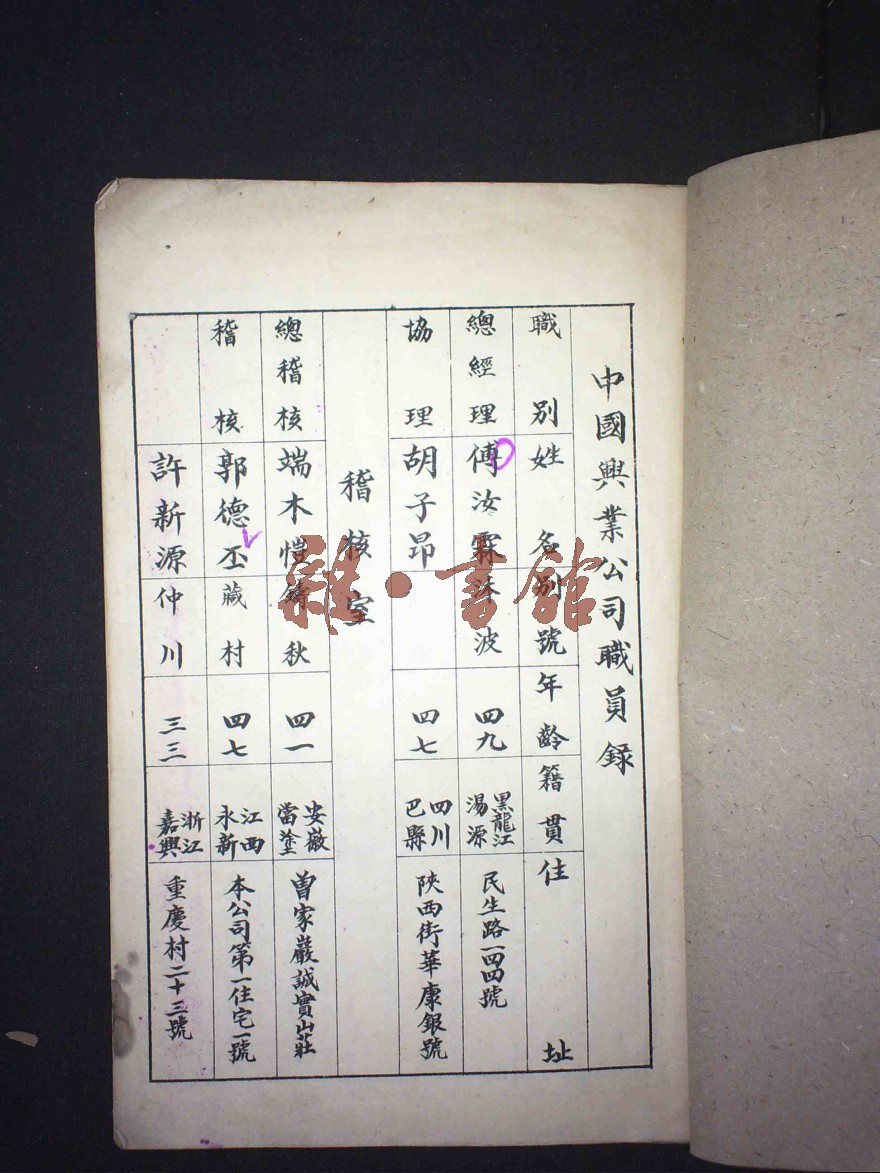 中國興業公司職員錄
職別 姓名 別號 年齡 籍貫 住址
總經理 傅汝霖 沐波 四九 黑龍江湯源 民生路一四四號
協理 胡子昂 四七 四川巴縣 陝西街華康銀號
稽核室
總稽核 端木愷 鑄秋 四一 安徽當塗 曾家巖誠實山莊
稽核 郭德丕 藏村 四七 江西永新 本公司第一住宅一號
許新源 仲川 三三 浙江嘉興 重慶村二十三號
雜·書館